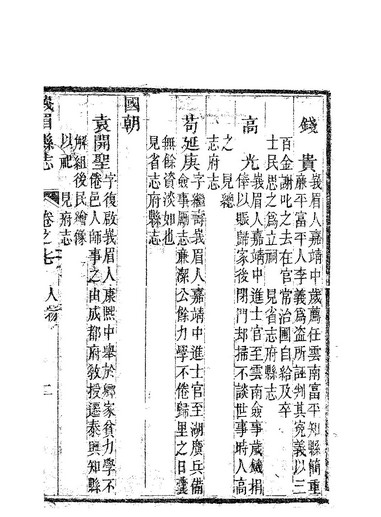 錢貴 峩眉人嘉靖中歲薦任雲南富平知縣簡重
廉平富平人李義爲盜所誣判其寃義以三
百金謝叱之去在官常治圃自給及卒
士民思之爲立祠 見省志府縣志
高光 峩眉人嘉靖中進士官至雲南僉事歲饑捐
俸以賑歸家後閉門却掃不談世事時人高
之 見總
志府志
荀延庚 字繼壽峩眉人嘉靖中進士官至湖廣兵備
僉事勵志廉潔公餘力學不倦歸里之日囊
無餘資淡如也
見省志府縣志
國朝
袁開聖 字復啟峩眉人康熙中舉於鄉家貧力學不
倦邑人師事之由成都府教授遷泰興知縣
解組後民繪像
以祀 見府志
峩眉縣志 卷之七 人物 二